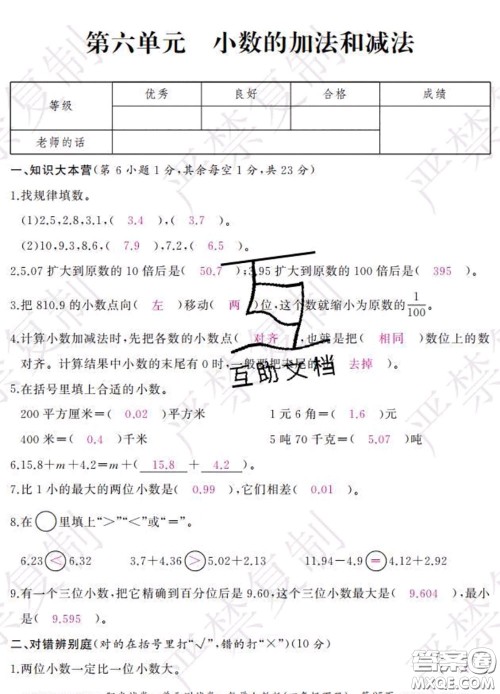 第六单元　小数的加法和减法
等级　优秀　良好　合格　成绩
老师的话
一、知识大本营(第 6 小题 1 分,其余每空 1 分,共 23 分)
1.找规律填数。
(1)2.5,2.8,3.1,( 3.4 ),( 3.7 )。
(2)10,9.3,8.6,( 7.9 ),7.2,( 6.5 )。
2.5.07 扩大到原数的 10 倍后是( 50.7 ),3.95 扩大到原数的 100 倍后是( 395 )。
3.把 810.9 的小数点向( 左 )移动( 两 )位,这个数就缩小为原数的1/100。
4.计算小数加减法时,先把各数的小数点( 对齐 ),也就是把( 相同 )数位上的数
对齐。计算结果中小数的末尾有 0 时,一般要把末尾的 去掉 )。
5.在括号里填上合适的小数。
200 平方厘米=( 0.02 )平方米　1 元 6 角=( 1.6 )元
400 米=( 0.4 )千米　5 吨 70 千克=( 5.07 )吨
6.15.8+m+4.2=m+( 15.8 + 4.2 )。
7.比 1 小的最大的两位小数是( 0.99 ),它们相差( 0.01 )。
8.在○里填上“>”“<”或“=”。
6.23<6.32　3.7+4.36>5.02+2.13　11.94-4.9=4.12+2.92
9.有一个三位小数,把它精确到百分位后是 9.60,这个三位小数最大是( 9.604 ),最小
是( 9.595 )。
二、对错辨别庭(对的在括号里打“√”,错的打“×”)(10 分)
1.两位小数一定比一位小数大。
严禁复制
互助文档
答案圈
MXQE.COM